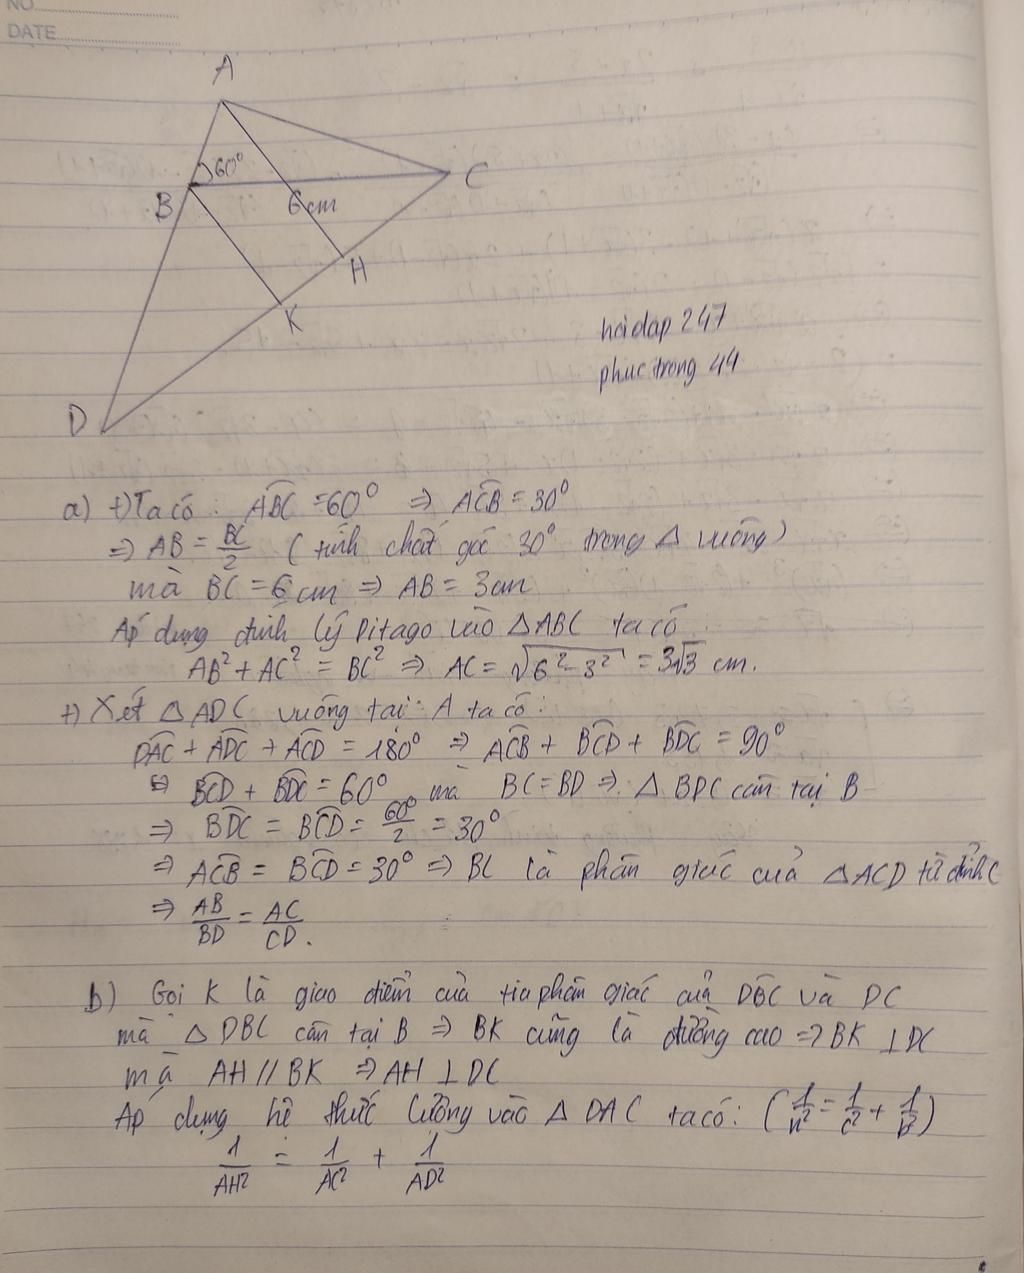 NO
DATE
A
60°
B
C
6cm
H
K
hoidap 247
phuctrong 44
D
a) +) Ta có : ABC = 60° => ACB = 30°
=> AB = BC/2 ( tính chất góc 30° trong Δ vuông)
mà BC = 6cm => AB = 3cm
Áp dụng định lý Pitago vào ΔABC ta có
AB² + AC² = BC² => AC = √(6² - 3²) = 3√3 cm.
+) Xét ΔADC vuông tại A ta có :
DAC + ADC + ACD = 180° => ACB + BCD + BDC = 90°
=> BCD + BDC = 60° mà BC = BD => Δ BDC cân tại B
=> BDC = BCD = 60°/2 = 30°
=> ACB = BCD = 30° => BC là phân giác của ΔACD từ đỉnh C
=> AB/BD = AC/CD.
b) Gọi K là giao điểm của tia phân giác của DBC và DC
mà Δ DBC cân tại B => BK cũng là đường cao => BK ⊥ DC
mà AH // BK => AH ⊥ DC
Áp dụng hệ thức lượng vào Δ DAC ta có: ( 1/h² = 1/c² + 1/b² )
1/AH² = 1/AC² + 1/AD²